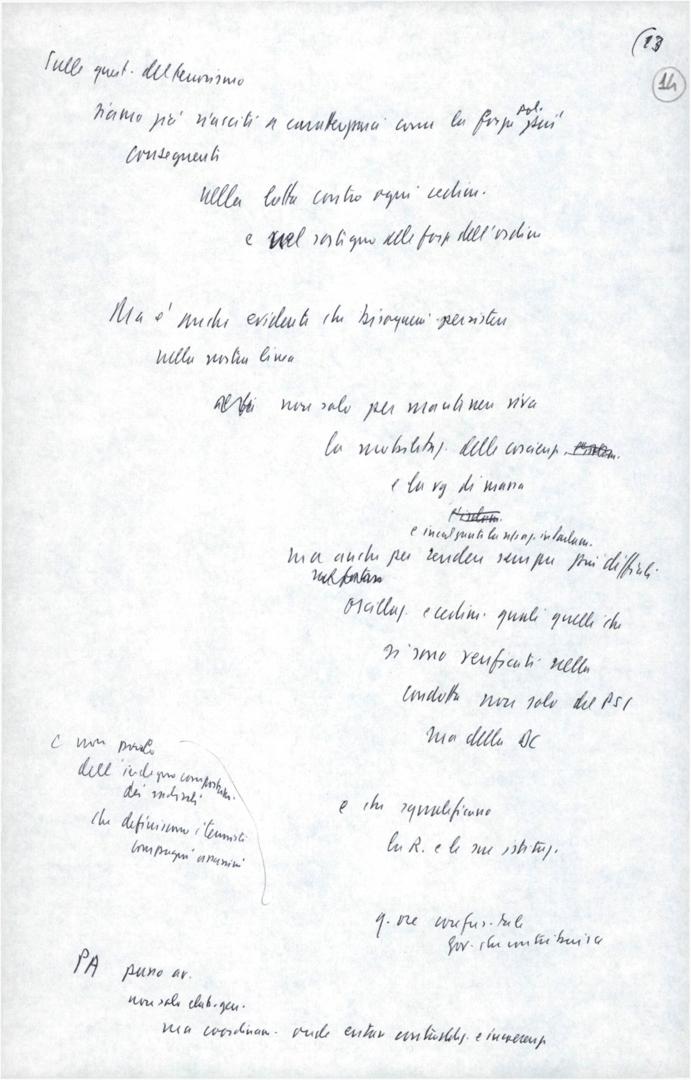 (13
14
Sulle quest. del terrorismo
siamo più riusciti a caratterizzarci come la forza pol. più
conseguenti
nella lotta contro ogni cedim.
e nel sostegno delle forze dell'ordine
Ma è anche evidente che bisognerà persistere
nella nostra linea
non solo per mantenere viva
la mobilitaz. delle coscienze
e la vig. di massa
ma anche per rendere sempre più difficili
oscillaz. e cedim. quali quelli che
si sono verificati nella
condotta non solo del PSI
ma della DC
e non parlo
dell'indegno comportam.
dei radicali
che definiscono i terroristi
compagni assassini
e che squalificano
la R. e le sue istituz.
gov. che contribuisce
PA
non solo dib. gen.
ma coordinam. onde evitare